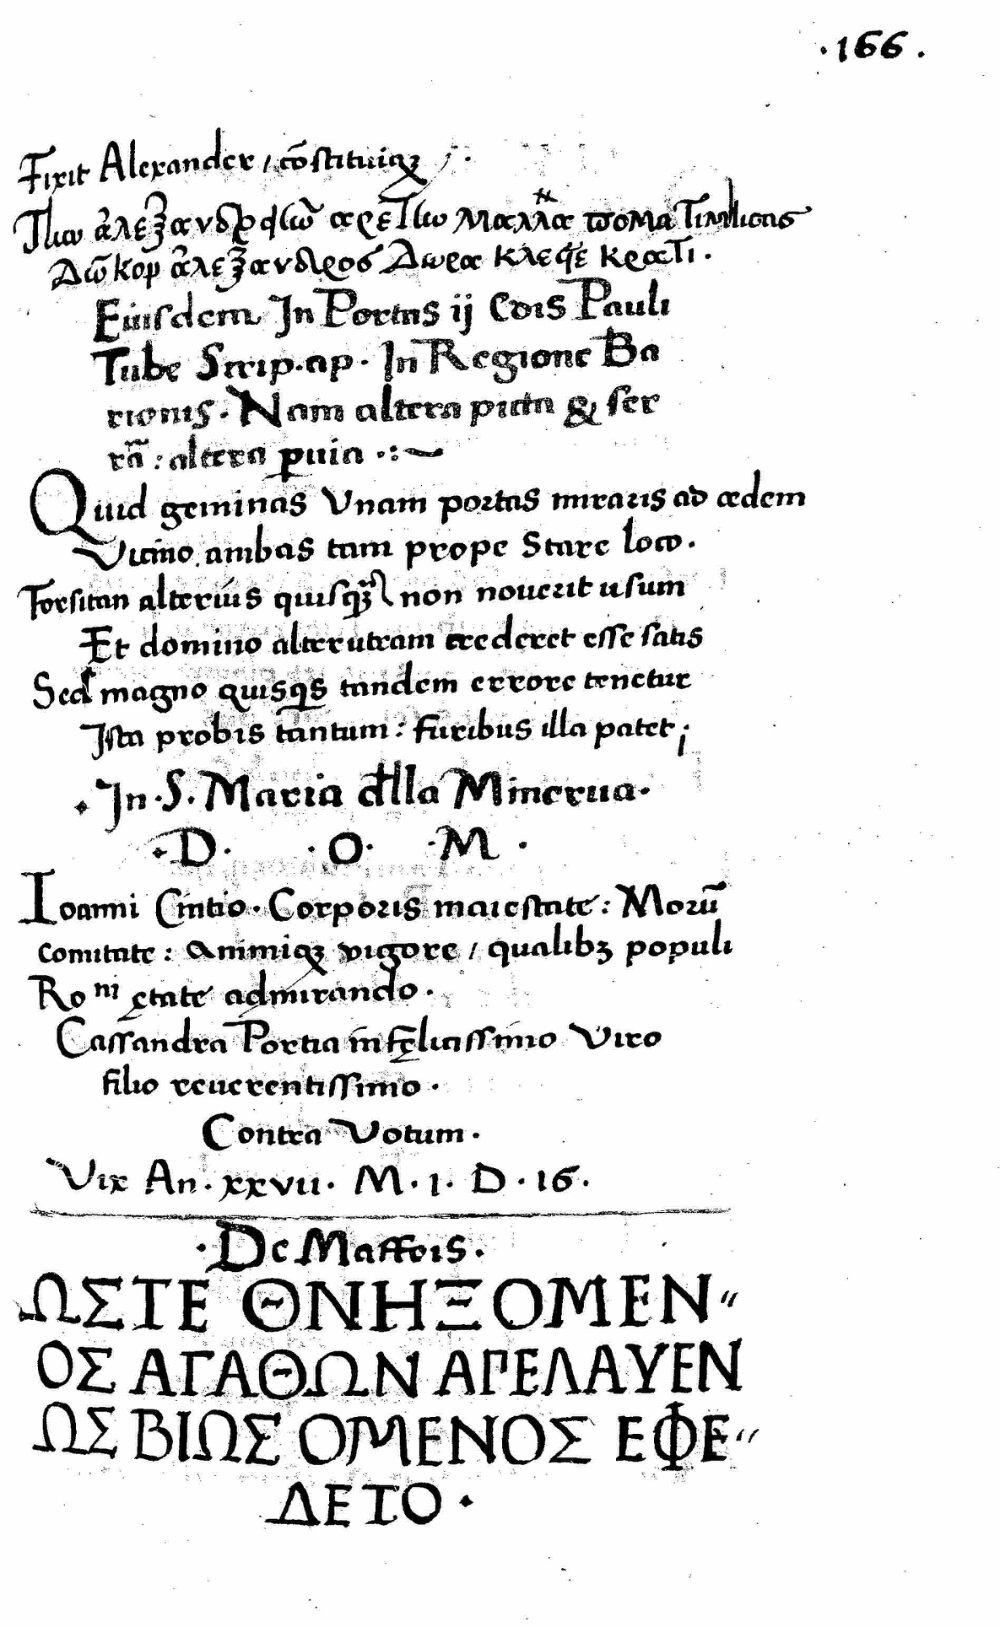 ·166.
Fixit Alexander, cōstituiqȝ
Eiusdem In Portas ij Cdis Pauli
Tube Scrip.ap. In Regione Ba
rionis. Nam altera picta & ser
rā: altera ꝑuia
Quid geminas Vnam portas miraris ad ædem
Vicino ambas tam prope Stare loco.
Forsitan alterius quisqȝ non noverit usum
Et domino alterutram crederet esse satis
Sed magno quisqs tandem errore tenetur
Ista probis tantum: furibus illa patet;
In S. Maria dlla Minerua.
D. O. M.
Ioanni Cintio. Corporis maiestate: Morū
comitate: Animiqȝ vigore, qualibȝ populi
Roni ętate admirando.
Cassandra Portia infęlicissimo Viro
filio reuerentissimo.
Contra Votum.
Vix An. xxvii. M. 1. D. 16.
De Maffeis.
ΩΣΤΕ ΘΝΗΞΟΜΕΝ"
ΟΣ ΑΓΑΘΩΝ ΑΠΕΛΑΥΕΝ
ΩΣ ΒΙΩΣ ΟΜΕΝΟΣ ΕΦΕ"
ΔΕΤΟ.